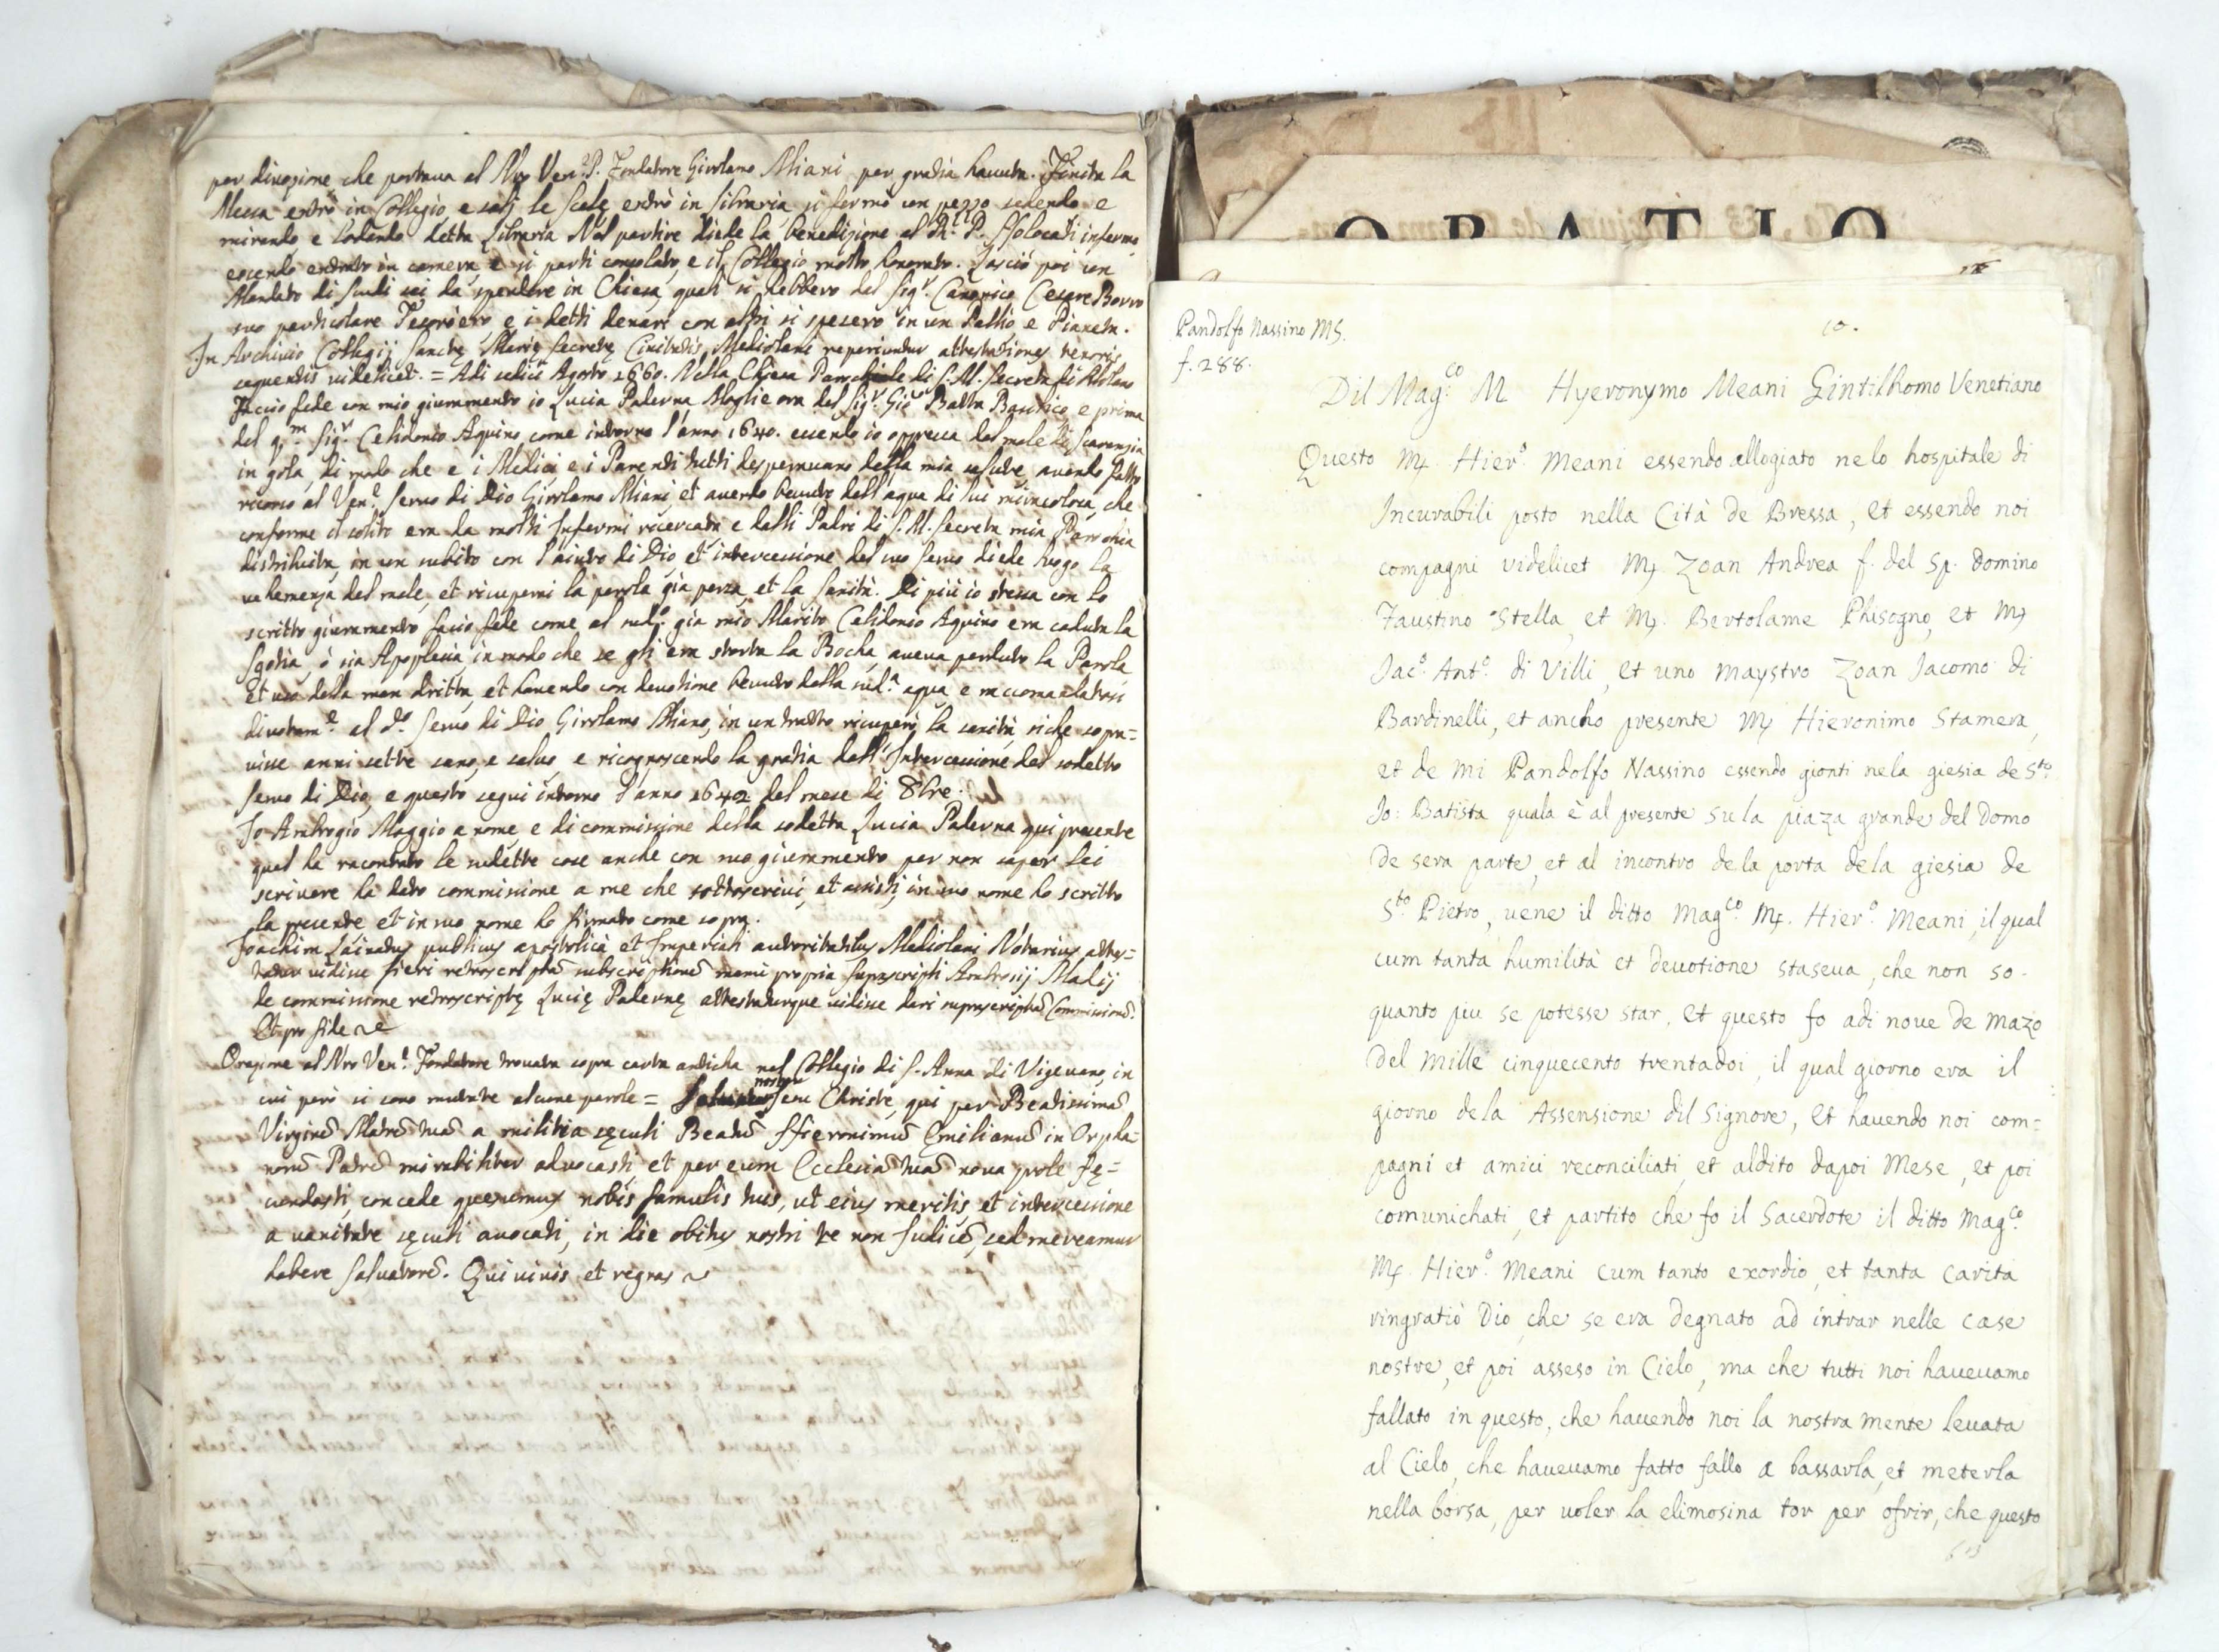 per divozione che portava al Nro Ven. P. Fondatore Girolamo Miani per gratia havuta. Finita la
Messa entrò in Collegio, e salì le scale entrò in libraria si fermò un pezzo sedendo e
mirando e lodando detta Libraria. Nel partire diede la benedizione al infermo
essendo entrato in camera e si partì consolato, e il Collegio molto honorato. Lasciò poi un
Mandato di scudi sei da spendere in Chiesa, quali si hebbero dal Sigr. Canonico Cesare Borro
suo particolare Tesoriero e i detti denari con altri si spesero in un Pallio e Pianeta.
In Archivio Collegij Sanctę Marię Secretę Civitatis Mediolani reperiuntur attestationes tenoris
sequentis videlicet. = Adi sedici Agosto 1660. Nella Chiesa Parochiale di S. M. Secreta di Milano
Faccio fede con mio giuramento io Lucia Palerna Moglie ora del Sigr. Gio Batta e prima
del qm. Sigr. Celidonio Aquino, come intorno l'anno 1640. essendo io oppressa dal male di
in gola, di modo che e i Medici e i Parenti tutti desperavano della mia salute, avendo fatto
ricorso al Vene. Servo di Dio Girolamo Miani et avendo bevuto dell'aqua di lui miracolosa, che
conforme il solito era da molti Infermi ricercata e dalli Padri di S. M. Secreta mia Parochia
distribuita, in un subito con l'aiuto di Dio, et intercessione del suo Servo diede luogo la
vehemenza del male, et ricuperai la parola già persa, et la sanità. Di più io stessa con lo
scritto giuramento faccio fede come al sudo. già mio Marito Celidonio Aquino era caduta la
ò sia Apoplesia, in modo che se gli era storta la Bocha, aveva perduto la Parola
et uso della man dritta, et havendo con devotione bevuto della suda. aqua e raccomandatosi
divotame. al do. Servo di Dio Girolamo Miano, in un tratto ricuperò la sanità, siche sopra=
visse anni sette sano, e salvo e ricognoscendo la gratia dall'Intercessione del sodetto
Servo di Dio, e questo seguì intorno l'anno 1642 del mese di 8bre.
Io Ambrogio Maggio a nome, e di commissione della sodetta Lucia Palerna qui presente
qual ha racontato le sudette cose anche con suo giuramento per non saper lei
scrivere ha dato commissione a me che sottoscrivi, et in suo nome ho scritto
la presente et in suo nome ho firmato come sopra.
Joachim publicus apostolica et Imperiali autoritatibus Mediolani Notarius attes=
tatur vidisse fieri retroscriptã subscriptionẽ manu propria suprascripti Ambrosij
de commissione retroscriptę Lucię Palernę attestaturque vidisse dari suprascriptã Commissionẽ.
Et pro fide
Orazione al Nro Ven. Fondatore trovata sopra carta anticha nel Collegio di S. Anna di Vigevano, in
cui però si sono mutate alcune parole = noster Jesu Christe, qui per Beatissimã
Virginẽ Matrẽ tuã a militia sęculi Beatũ Hieronimũ Emilianũ in Orpha=
norũ Patrẽ mirabiliter advocasti, et per eum Ecclesiã tuã nova prole fę=
cundasti, concede quęsumus nobis famulis tuis, ut eius meritis et intercessione
a vanitate sęculi avocati, in die obitus nostri te non Judicẽ, sed mereamur
habere Salvatorẽ. Qui vivis et regnas
ORATIO
Pandolfo Nassino MS.
f. 288.
10.
Dil Mag.co M Hyeronymo Meani Gintilhomo Venetiano
Questo Mx. Hier.o Meani essendo allogiato nelo hospitale di
Incurabili posto nella Cità de Bressa, et essendo noi
compagni videlicet Mx. Zoan Andrea f. del Sp. Domino
Faustino Stella, et Mx. Bertolame Phisogno, et Mx
Jac.o Ant.o di Villi, et uno Maystro Zoan Jacomo di
Bardinelli, et ancho presente Mx Hieronimo Stamera,
et de mi Pandolfo Nassino essendo gionti nela giesia de S.to
Jo: Batista quala è al presente su la piaza grande del Domo
de sera parte, et al incontro dela porta dela giesia de
S.to Pietro, uene il ditto Mag.co Mx. Hier.o Meani, il qual
cum tanta humilità et deuotione staseua, che non so
quanto piu se potesse star, et questo fo adi noue de Mazo
del Mille cinquecento trentadoi, il qual giorno era il
giorno dela Assensione dil Signore, et hauendo noi com=
pagni et amici reconciliati, et aldito dapoi Mese, et poi
comunichati, et partito che fo il Sacerdote il ditto Mag.co
Mx. Hier.o Meani cum tanto exordio, et tanta carità
ringratiò Dio, che se era degnato ad intrar nelle case
nostre, et poi asseso in Cielo, ma che tutti noi haueuamo
fallato in questo, che hauendo noi la nostra mente leuata
al Cielo, che haueuamo fatto fallo a bassarla, et meterla
nella borsa, per uoler la elimosina tor per ofrir, che questo